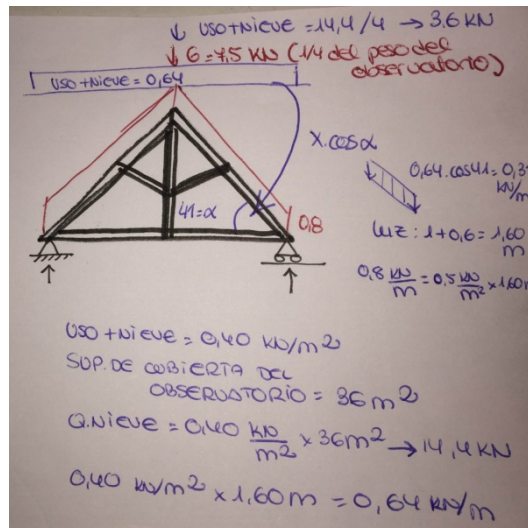 ↓ USO+NIEVE = 14,4/4 → 3,6 KN
↓ G = 7,5 KN (1/4 del peso del
observatorio)
USO+NIEVE = 0,64
X.cosα
0,64.cos41=0,3
KN/m
41=α
0,8
luz: 1+0,6 = 1,60
m
0,8 KN/m = 0,5 KN/m² x 1,60 m
USO+NIEVE = 0,40 KN/m²
SUP. DE CUBIERTA DEL
OBSERVATORIO = 36 m²
Q.NIEVE = 0,40 KN/m² x 36m² → 14,4 KN
0,40 KN/m² x 1,60 m = 0,64 KN/m